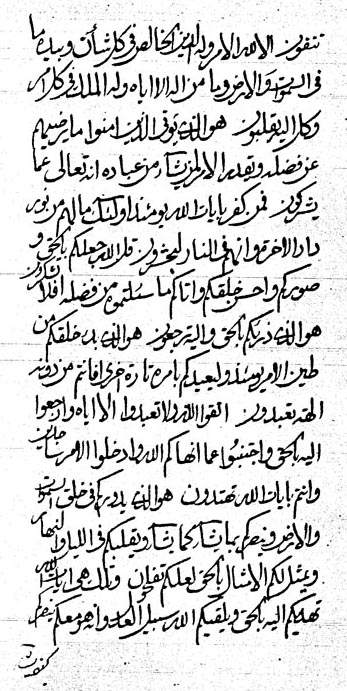 تتقون الا لله الامر وله الدين الخالص في كل شأن وبيده ما
في السموات والارض وما من اله الا اياه وله الملك في كل امر
وكل اليه يقلبون هو الذي يوتي الذين امنوا ما يرضيهم
عن فضله ويقدر الامر لمن يشاء من عباده انه تعالى عما
يشركون فمن كفر بايات الله يومئذ اولئك ما لهم من نور
دار الاخرة وانهم في النار ليحزنون قل الله جعلكم بالحق و
صوركم واحسن خلقكم واتاكم ما سئلتموه من فضله افلا تشكرون
هو الذي ذريكم بالحق واليه ترجعون هو الذي بدء خلقكم من
طين الامر يومئذ وليعيدكم بامره تارة اخرى افانتم من دونه
الهة تعبدون اتقوا الله ولا تعبدوا الا اياه وارجعوا
اليه بالحق واجتنبوا عما انهاكم الله وادخلوا الامر
وانتم بايات الله تهتدون هو الذي في خلق السموات
والارض وينصركم بما يشاء كما يشاء ويقلبكم في الليل والنهار
ويمثل لكم الامثال بالحق لعلكم تتقون وتلك هي ايات الله
تهديكم اليه بالحق ويلقيكم الله سبيل العدل وانه هو معكم